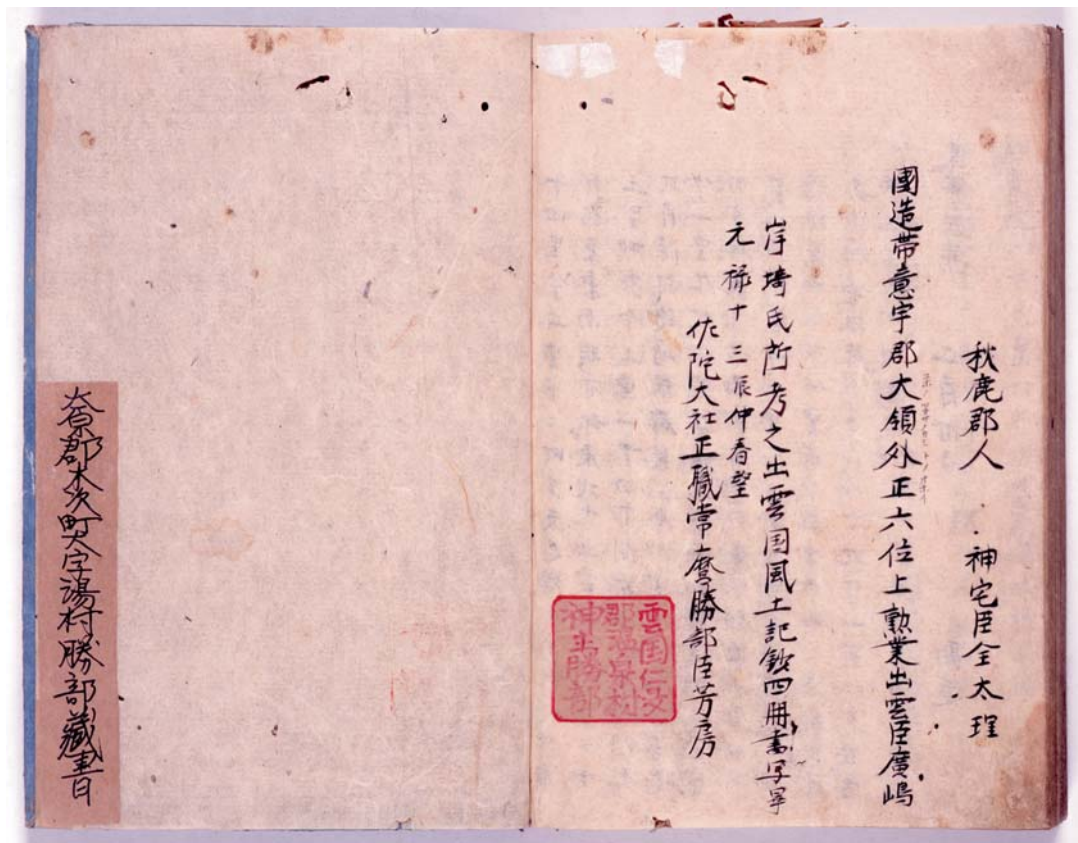 秋鹿郡人 神宅臣全太理
國造帯意宇郡大領外正六位上勲業出雲臣廣嶋
岸埼氏所考之出雲国風土記鈔四冊書写畢
元禄十三辰仲春望
佐陀大社正職常麿勝部臣芳房
雲国仁多
郡温泉村
神主勝部
大原郡木次町大字湯村勝部蔵書